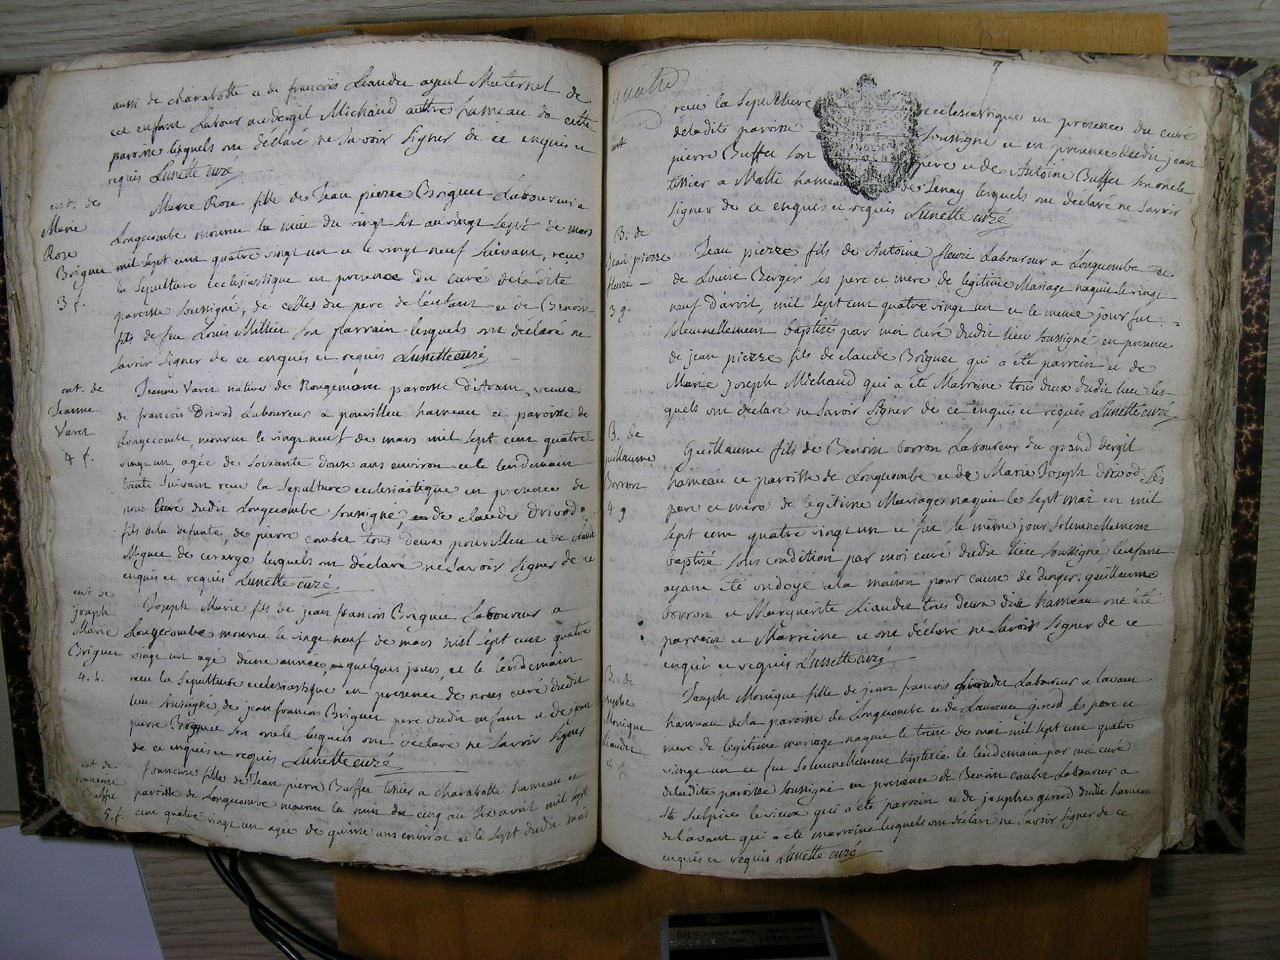 aussi de charabotte et de françois Liaudet ayeul Maternel de
cet enfant Laboureur au dergit Michaud autres hameau de cette
paroisse lesquels ont déclaré ne savoir signer de ce enquis et
requis Lunette curé
ent. de
Marie
Rose
Briguet
3 f.
Marie Rose fille de Jean pierre Briguet Laboureur a
Longecombe mourut la nuit du vingt six au vingt sept de mars
mil sept cent quatre vingt un et le vingt neuf suivant, reçu
la sépulture ecclesiastique en presence du curé deladite
paroisse soussigné, de celles du pere de l'enfant et de Benoit
fils de feu Louis Millier son parrain lesquels ont déclaré ne
savoir signer de ce enquis et requis Lunette curé
ent. de
Jeanne
Varet
4 f.
Jeanne Varet native de Rougemont paroisse d'Aran, veuve
de françois Drivod Laboureur a pouvilleu hameau et paroisse de
Longecombe, mourut le vingt neuf de mars mil sept cent quatre
vingt un, agée de soixante douze ans environ et le lendemain
trente suivant reçu la sepulture ecclesiastique en presence de
nous curé dudit Longecombe soussigné, de claude Drivod
fils de la defunte, de pierre combet tous deux pouvilleu et de
Miguet de lesquels ont déclaré ne savoir signer de ce
enquis et requis Lunette curé
ent. de
joseph
Marie
Briguet
4. h.
Joseph Marie fils de jean françois Briguet Laboureur a
Longecombe mourut le vingt neuf de mars mil sept cent quatre
vingt un agé d'une année, et quelques jours, et le lendemain
reçu la sepulture ecclesiastique en presence de nous curé dudit
lieu soussigné, de jean françois Briguet pere dudit enfant et de jean
pierre Briguet son oncle lesquels ont déclaré ne savoir signer
de ce enquis et requis Lunette curé
ent. de
françoise
Buffet
5. f.
françoise fille de Jean pierre Buffet tissier a charabotte hameau et
paroisse de Longecombe mourut la nuit du cinq au six avril mil sept
cent quatre vingt un agée de quinze ans environ et le sept dudit mois
quatre
7
reçu la sepulture ecclesiastique en presence du curé
deladite paroisse soussigné et en presence dudit jean
pierre Buffet son pere et de Antoine Buffet son oncle
tissier a hameau de Lenay lesquels ont déclaré ne savoir
signer de ce enquis et requis Lunette curé
B. de
Jean pierre
Heuzé
3 g.
Jean pierre fils de Antoine Heuré Laboureur a Longecombe et
de Louise Berger ses pere et mere de legitime Mariage naquit le vingt
neuf d'avril, mil sept cent quatre vingt un et le meme jour fut
solennellement baptisé par moi curé dudit lieu soussigné en presence
de jean pierre fils de claude Briguet qui a été parrein et de
Marie Joseph Michaud qui a été Marreine tous deux dudit lieu les
quels ont déclaré ne savoir signer de ce enquis et requis Lunette curé
B. de
guillaume
Borron
4 g
Guillaume fils de Benoit borron Laboureur du grand dergit
hameau et paroisse de Longecombe et de Marie Joseph drivod ses
pere et mere de legitime Mariage naquit le sept mai en mil
sept cent quatre vingt un et fut le même jour solennellement
baptisé sous condition par moi curé dudit lieu soussigné l'enfant
ayant été ondoyé a la maison pour cause de danger. guillaume
borron et Marguerite Liaudet tous deux dudit hameau ont été
parrein et Marreine et ont déclaré ne savoir signer de ce
enquis et requis Lunette curé
B. de
josephe
Monique
Liaudet
Joseph Monique fille de jean françois Liaudet Laboureur a lavant
hameau de la paroisse de Longecombe et de Laurence girod ses pere et
mere de legitime mariage naquit le treize de mai mil sept cent quatre
vingt un et fut solennellement baptisée le lendemain par moi curé
deladite paroisse soussigné en presence de Benoit combet Laboureur a
St Sulpice le vieux qui a été parrein et de josephe girod dudit hameau
de lavant qui a été marreine lesquels ont déclaré ne savoir signer de ce
enquis et requis Lunette curé